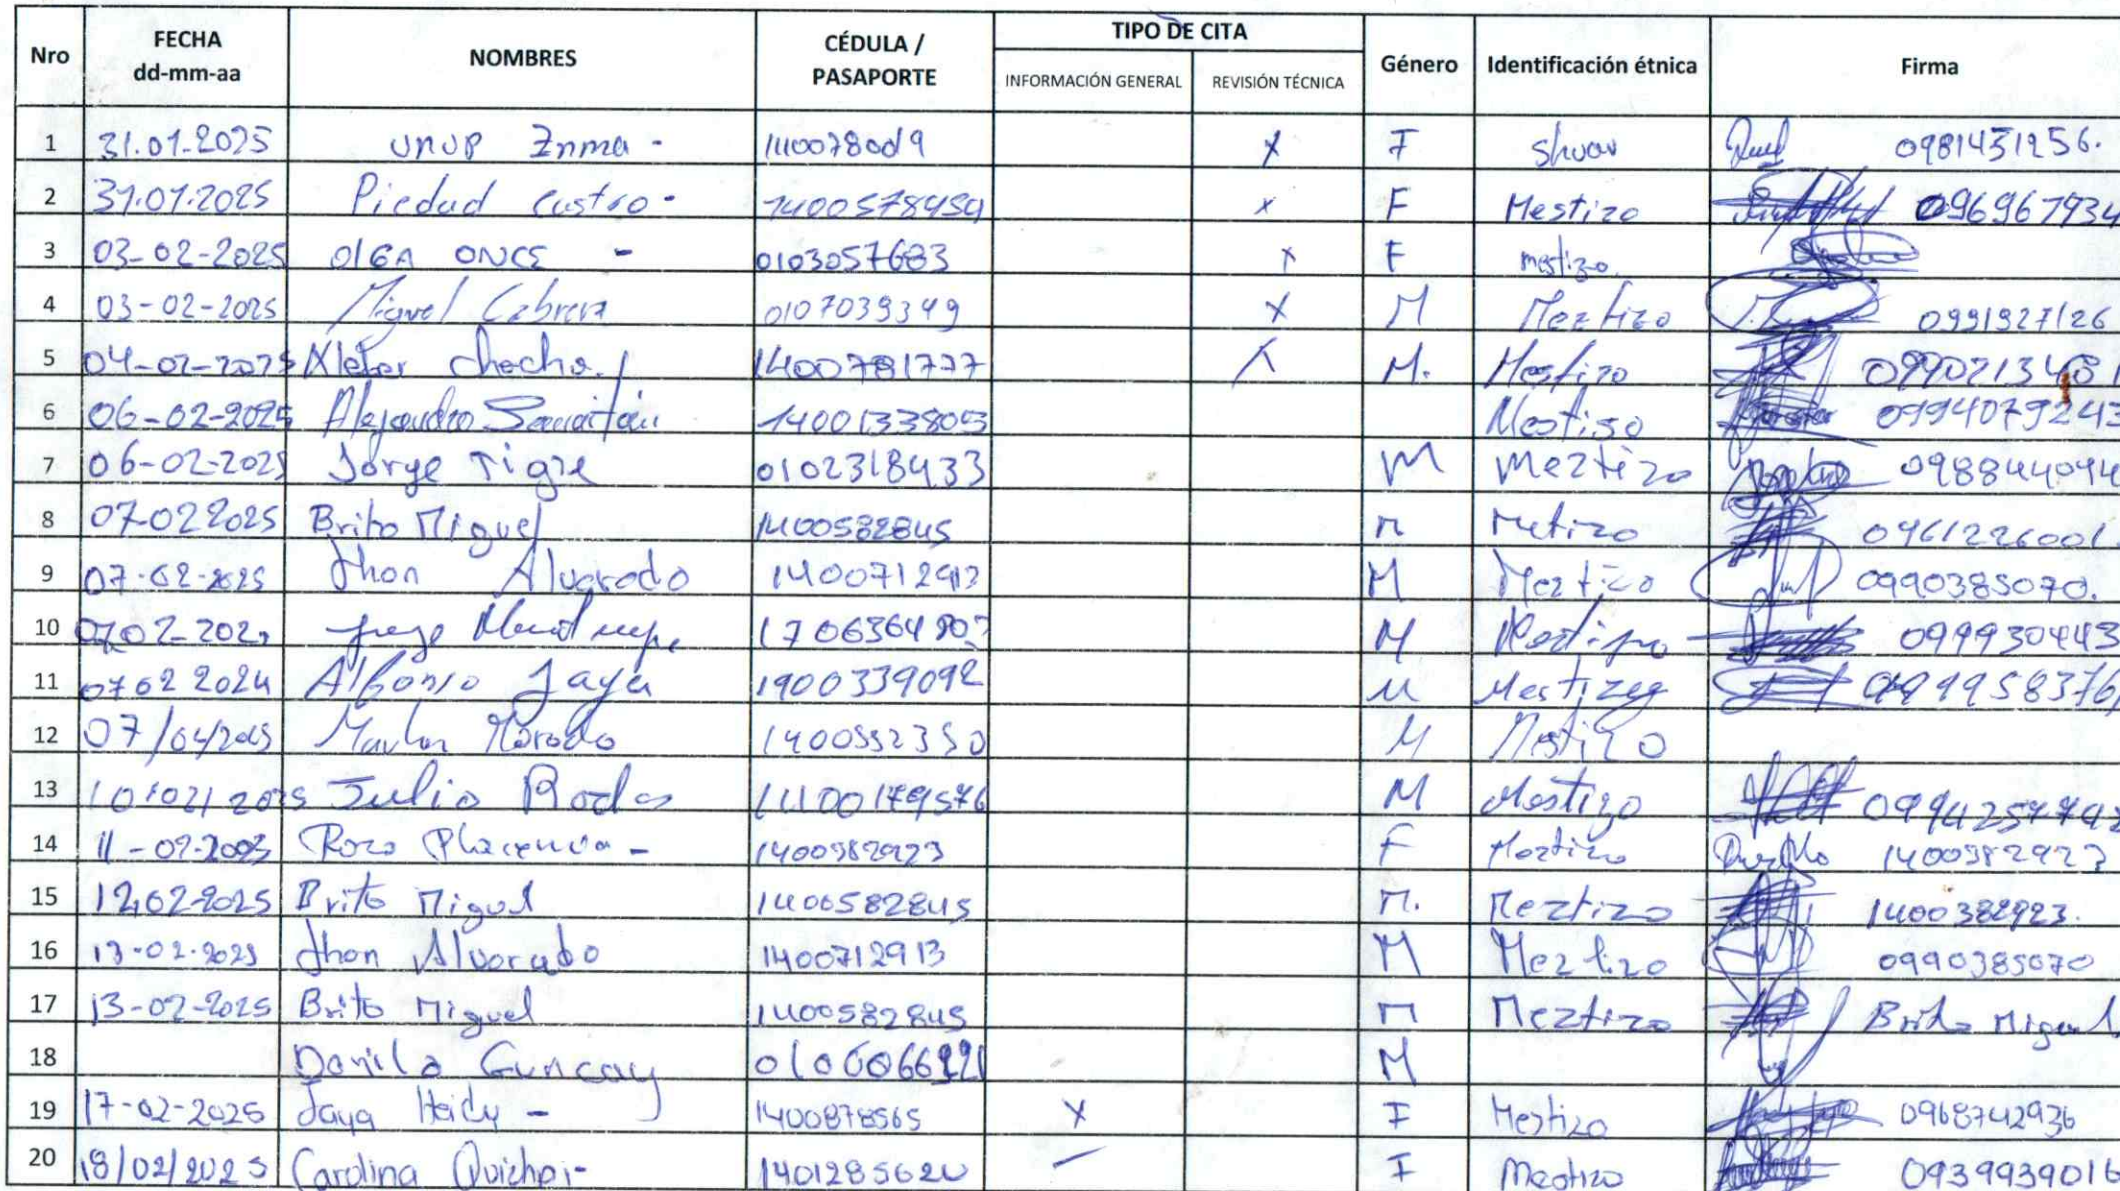 Nro FECHA dd-mm-aa NOMBRES CÉDULA / PASAPORTE TIPO DE CITA INFORMACIÓN GENERAL REVISIÓN TÉCNICA Género Identificación étnica Firma
1 31.01.2025 unup Inma - x F shuar 0981451256.
2 31.01.2025 Piedad Castro - x F Mestizo 096967934
3 03-02-2025 OlGA ONCE - 0103057683 x F mestizo
4 03-02-2025 Miguel Cabrera 0107039349 x M Meztizo 0991927126
5 04-02-2025 Kleber chacha. 1400781777 x M. Mestizo
6 06-02-2025 Alejandro 1400133805 Mestiso 0994079243
7 06-02-2025 Jorge Tigre 0102318433 M meztizo 098844094
8 07-022025 Brito Miguel 1400582845 M metizo 096122600
9 07-02-2025 Jhon Alvarado 1400712913 M Meztizo 0990385070.
10 0702-202 Jorge 1706364 M Mestizo 099930443
11 0702 2024 Alfonso Jaya 1900339092 M Mestizo
12 07/04/2025 M Mestizo
13 10/02/2025 Julio Rodas 1400179576 M Mestizo 099425774
14 11-02-2025 Rosa Placencia - 1400382923 F Meztizo 1400382923
15 12,02-2025 Brito Miguel 1400582845 M. Meztizo 1400382923.
16 13-02-2025 Jhon Alvorado 1400712913 M Meztizo 0990385070
17 13-02-2025 Brito Miguel 1400582845 M Meztizo Brito Miguel
18 Danilo Guncay M
19 17-02-2025 Jaya Heidy - 1400878565 x F Mestizo 0968742936
20 18/02/2025 Carolina Quizhpi- F Mestizo 0939939016